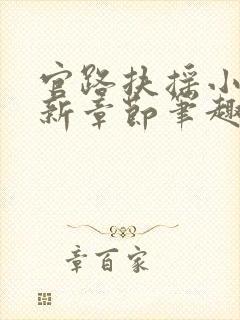 官路扶摇小
新章节笔趣
章百家